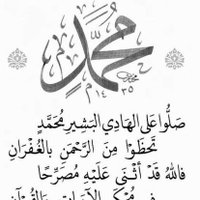 محمد
١٤٣٥
صَلُّوا عَلَى الهَادِي البَشِيرِ مُحَمَّدٍ
تَحظَوْا مِنَ الرَّحْمَنِ بِالغُفْرَانِ
فَاللهُ قَدْ أَثْنَى عَلَيْهِ مُصَرِّحًا
فِي مُحْكَمِ الآيَاتِ وَالقُرْآنِ